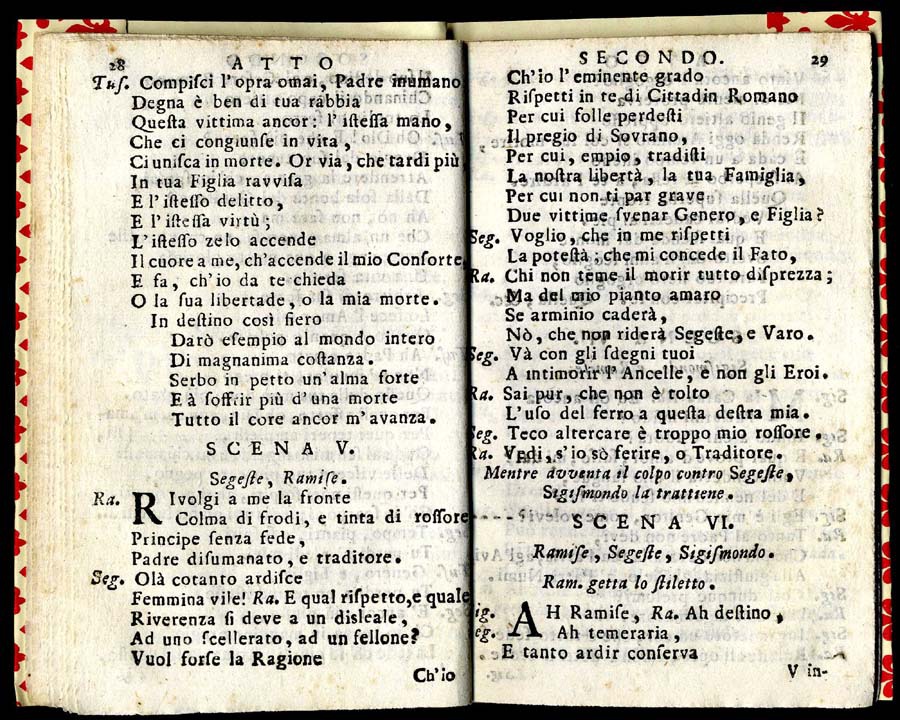 28 ATTO
Tuſ. Compiſci l'opra omai, Padre inumano
Degna è ben di tua rabbia
Queſta vittima ancor: l'iſteſſa mano,
Che ci congiunſe in vita,
Ci uniſca in morte. Or via, che tardi più
In tua Figlia ravviſa
E l'iſteſſo delitto,
E l'iſteſſa virtù;
L'iſteſſo zelo accende
Il cuore a me, ch'accende il mio Conſorte,
E fa, ch'io da te chieda
O la ſua libertade, o la mia morte.
In deſtino così fiero
Darò eſempio al mondo intero
Di magnanima coſtanza.
Serbo in petto un'alma forte
E à soffrir più d'una morte
Tutto il core ancor m'avanza.
SCENA V.
Segeſte, Ramiſe.
Ra. RIvolgi a me la fronte
Colma di frodi, e tinta di roſſore
Principe ſenza fede,
Padre diſumanato, e traditore.
Seg. Olà cotanto ardiſce
Femmina vile! Ra. E qual riſpetto, e quale
Riverenza ſi deve a un disleale,
Ad uno ſcellerato, ad un fellone?
Vuol forſe la Ragione
Ch'io
SECONDO. 29
Ch'io l'eminente grado
Riſpetti in te di Cittadin Romano
Per cui folle perdeſti
Il pregio di Sovrano,
Per cui, empio, tradiſti
La noſtra libertà, la tua Famiglia,
Per cui non ti par grave
Due vittime ſvenar Genero, e Figlia?
Seg. Voglio, che in me riſpetti
La poteſtà; che mi concede il Fato,
Ra. Chi nòn teme il morir tutto diſprezza;
Ma del mio pianto amaro
Se arminio caderà,
Nò, che non riderà Segeſte, e Varo.
Seg. Và con gli ſdegni tuoi
A intimorir l'Ancelle, e non gli Eroi.
Ra. Sai pur, che non è tolto
L'uſo del ferro a queſta deſtra mia.
Seg. Teco altercare è troppo mio roſſore.
Ra. Vedi, s'io sò ferire, o Traditore.
Mentre avventa il colpo contro Segeſte,
Sigiſmondo la trattiene.
SCENA VI.
Ramiſe, Segeſte, Sigiſmondo.
Ram. getta lo ſtiletto.
Sig. AH Ramiſe, Ra. Ah deſtino,
Seg. Ah temeraria,
E tanto ardir conſerva
V in-